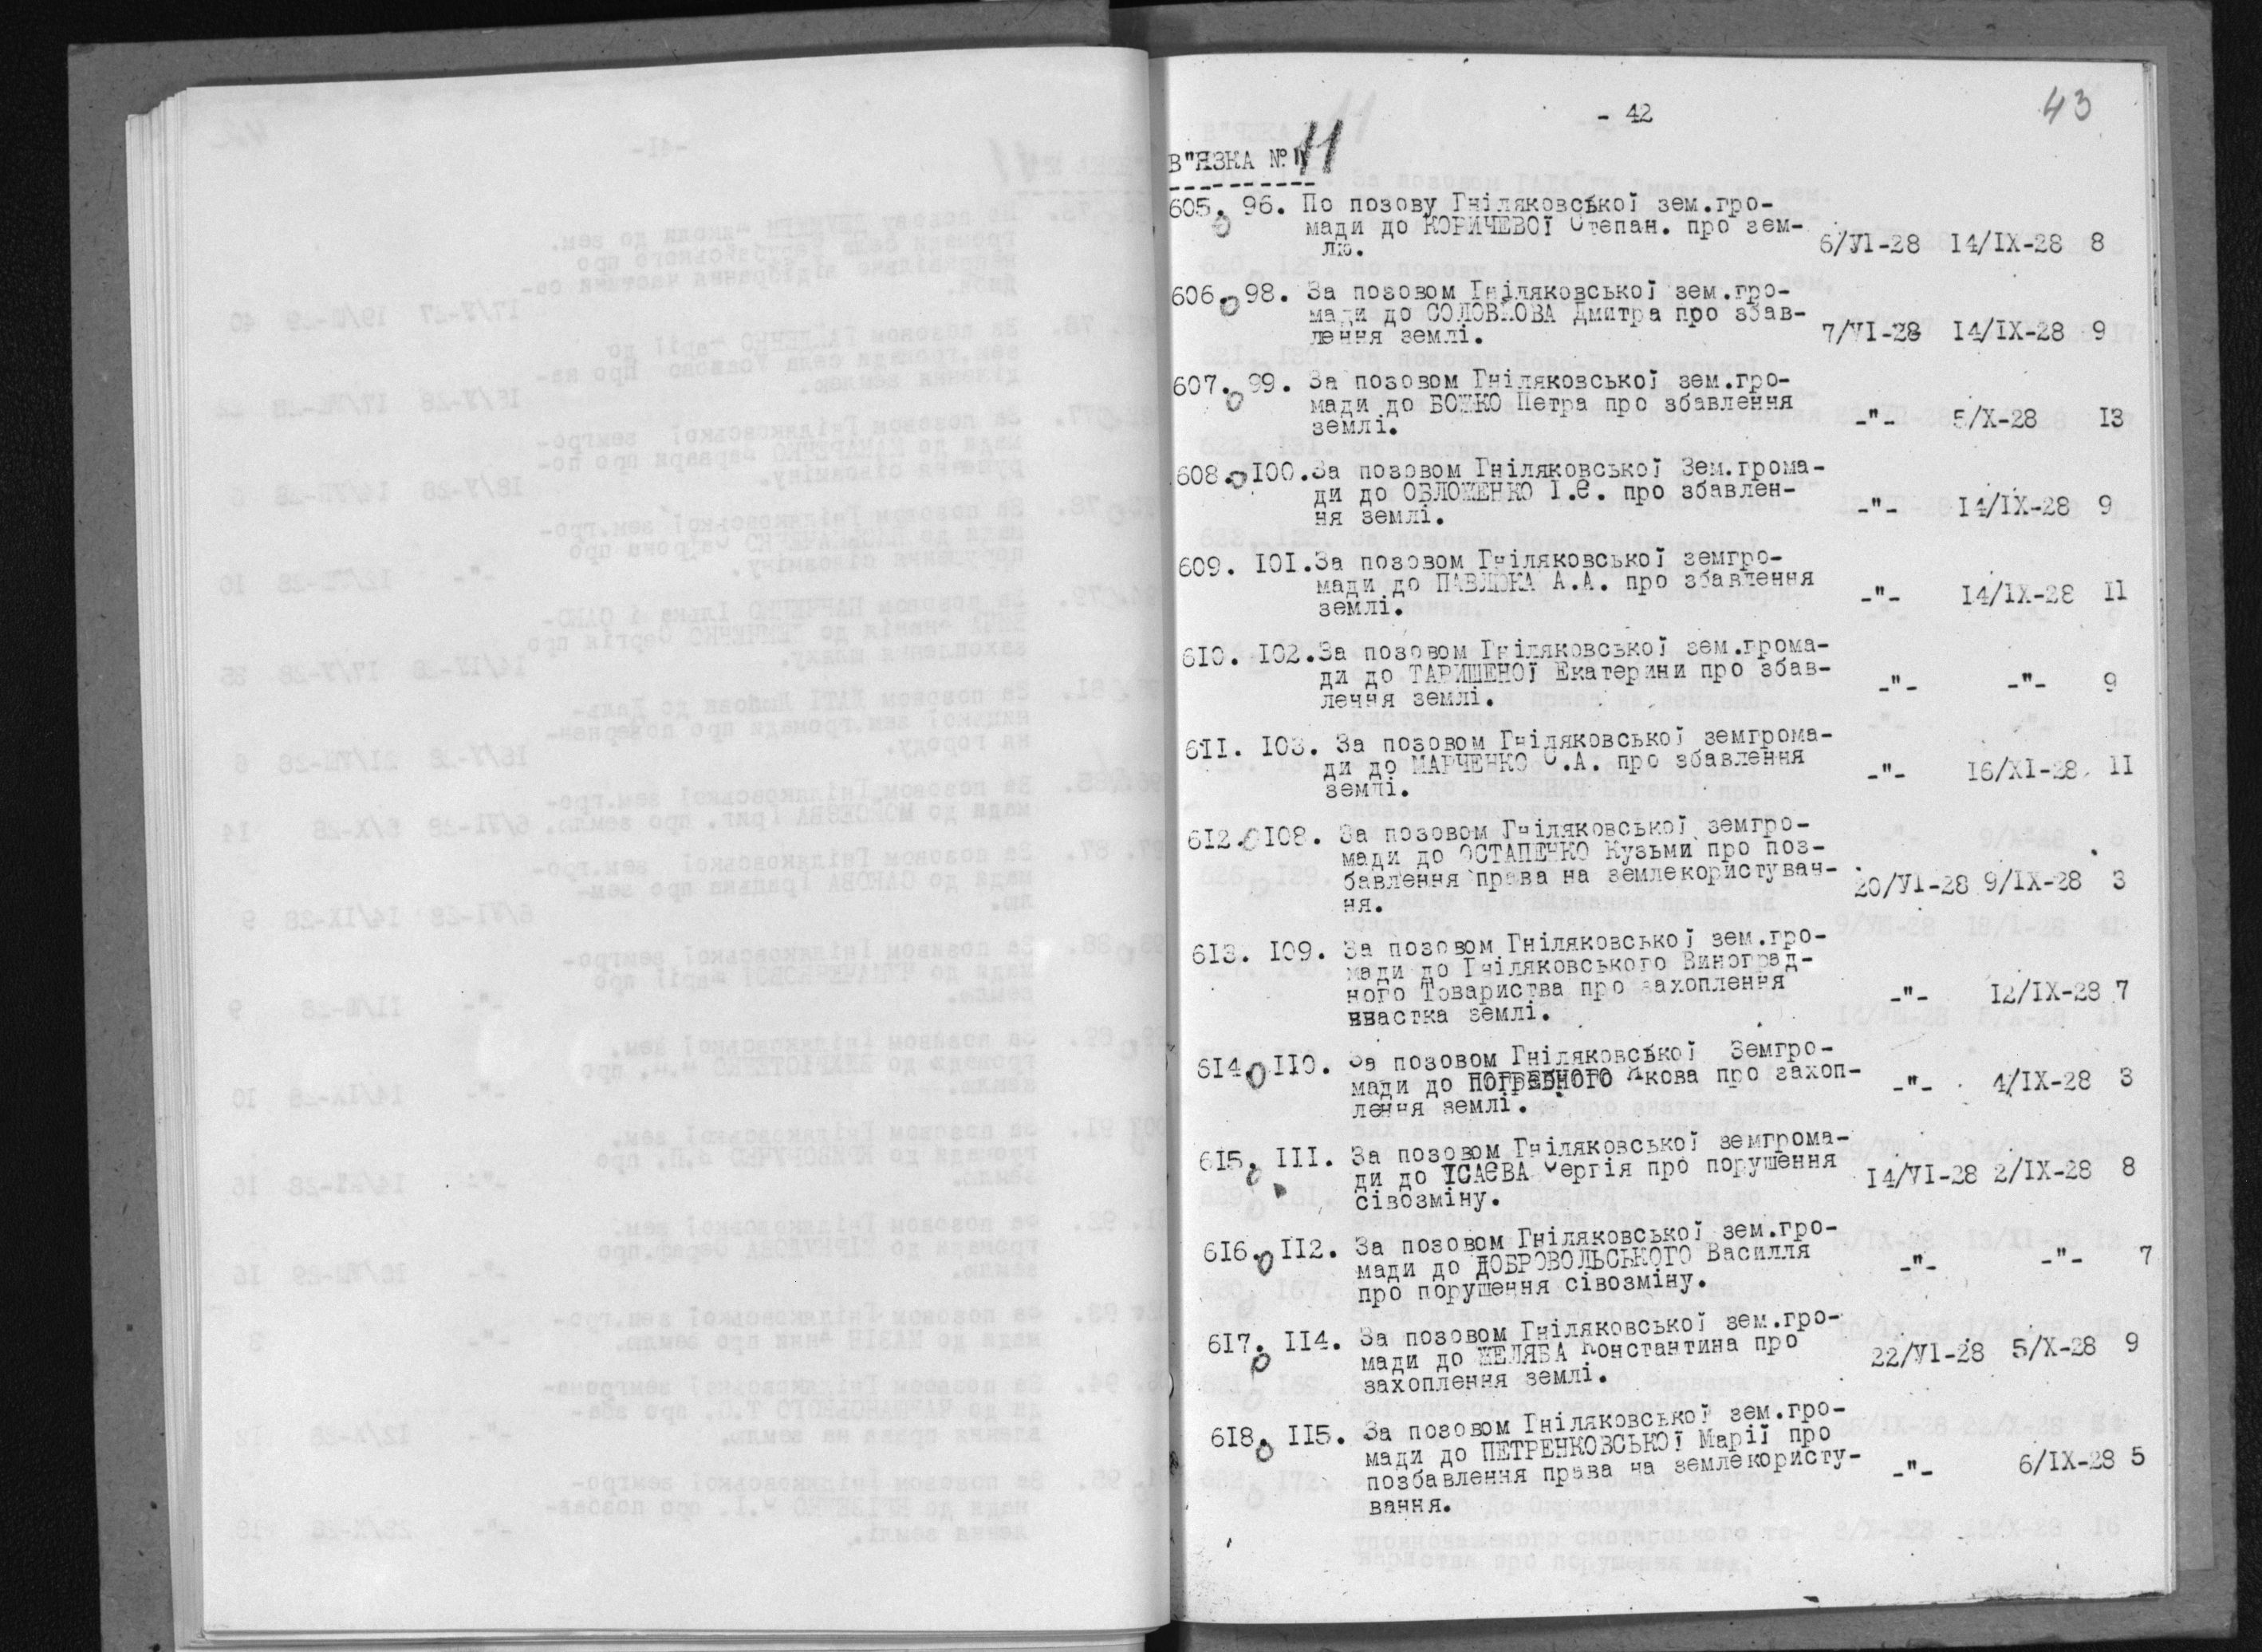 - 42
43
В"ЯЗКА № 11
605. 96. По позову Гніляковської зем.гро-
мади до КОРИЧЕВОЇ Степан. про зем-
лю. 6/УІ-28 І4/ІХ-28 8
606. 98. За позовом Гніляковської зем.гро-
мади до СОЛОВЙОВА Дмитра про збав-
лення землі. 7/УІ-28 І4/ІХ-28 9
607. 99. За позовом Гніляковської зем.гро-
мади до БОЖКО Петра про збавлення
землі. -"- 5/Х-28 ІЗ
608. І00. За позовом Гніляковської Зем.грома-
ди до ОБЛОЖЕНКО І.Є. про збавлен-
ня землі. -"- І4/ІХ-28 9
609. І0І. За позовом Гніляковської земгро-
мади до ПАВЛЮКА А.А. про збавлення
землі. -"- І4/ІХ-28 ІІ
6І0. І02. За позовом Гніляковської зем.грома-
ди до ТАРИШЕНОЇ Екатерини про збав-
лення землі. -"- -"- 9
6ІІ. І03. За позовом Гніляковської земгрома-
ди до МАРЧЕНКО С.А. про збавлення
землі. -"- І6/ХІ-28. ІІ
6І2. І08. За позовом Гніляковської земгро-
мади до ОСТАПЕНКО Кузьми про поз-
бавлення права на землекористуван-
ня. 20/УІ-28 9/ІХ-28 3
6ІЗ. І09. За позовом Гніляковської зем.гро-
мади до Гніляковського Виноград-
ного Товариства про захоплення
ввастка землі. -"- І2/ІХ-28 7
6І4. ІІ0. За позовом Гніляковської Земгро-
мади до ПОГРЕБНОГО Якова про захоп-
лення землі. -"- 4/ІХ-28 3
6І5. ІІІ. За позовом Гніляковської земгрома-
ди до ІСАЄВА Сергія про порушення
сівозміну. І4/УІ-28 2/ІХ-28 8
6І6. ІІ2. За позовом Гніляковської зем.гро-
мади до ДОБРОВОЛЬСЬКОГО Василля
про порушення сівозміну. -"- -"- 7
6І7. ІІ4. За позовом Гніляковської зем.гро-
мади до ШЕЛЯБА Константина про
захоплення землі. 22/УІ-28 5/Х-28 9
6І8. ІІ5. За позовом Гніляковської зем.гро-
мади до ПЕТРЕНКОВСЬКОЇ Марії про
позбавлення права на землекористу-
вання. -"- 6/ІХ-28 5